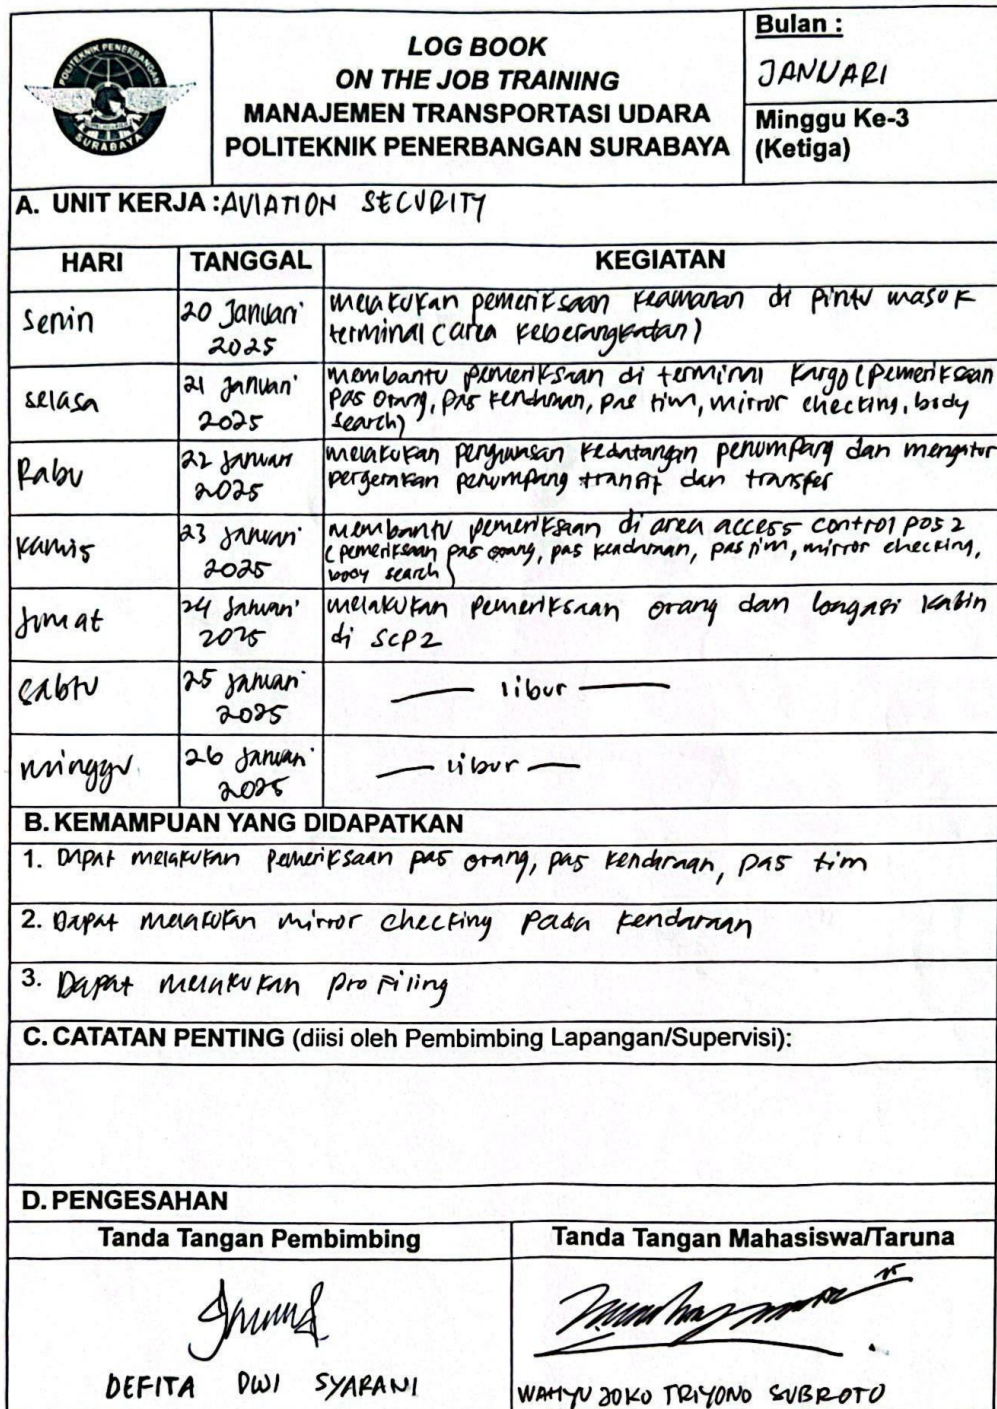 POLITEKNIK PENERBANGAN
SURABAYA
LOG BOOK
ON THE JOB TRAINING
MANAJEMEN TRANSPORTASI UDARA
POLITEKNIK PENERBANGAN SURABAYA
Bulan :
JANUARI
Minggu Ke-3
(Ketiga)
A. UNIT KERJA : AVIATION SECURITY
HARI TANGGAL KEGIATAN
Senin 20 Januari 2025 melakukan pemeriksaan keamanan di pintu masuk
terminal (area keberangkatan)
selasa 21 Januari 2025 membantu pemeriksaan di terminal kargo (pemeriksaan
pas orang, pas kendaraan, pas tim, mirror checking, body
search)
Rabu 22 Januari 2025 melakukan pengawasan kedatangan penumpang dan mengatur
pergerakan penumpang transit dan transfer
Kamis 23 Januari 2025 membantu pemeriksaan di area access control pos 2
(pemeriksaan pas orang, pas kendaraan, pas tim, mirror checking,
body search)
Jumat 24 Januari 2025 melakukan pemeriksaan orang dan bagasi kabin
di SCP2
sabtu 25 Januari 2025 libur
minggu 26 Januari 2025 libur
B. KEMAMPUAN YANG DIDAPATKAN
1. Dapat melakukan pemeriksaan pas orang, pas kendaraan, pas tim
2. Dapat melakukan mirror checking pada kendaraan
3. Dapat melakukan profiling
C. CATATAN PENTING (diisi oleh Pembimbing Lapangan/Supervisi):
D. PENGESAHAN
Tanda Tangan Pembimbing Tanda Tangan Mahasiswa/Taruna
DEFITA DWI SYARANI WAHYU JOKO TRIYONO SUBROTO